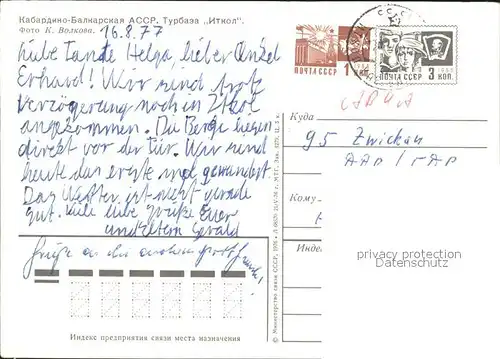 Кабардино-Балкарская АССР. Турбаза „Иткол".
Фото К. Волкова.
16.8.77
Liebe Tante Helga, lieber Onkel
Erhard! Wir sind trotz
Verzögerung noch in Itkol
angekommen. Die Berge liegen
direkt vor der Tür. Wir sind
heute das erste mal gewandert.
Das Wetter ist nicht gerade
gut. Viele liebe Grüße Euer
Gerald
ПОЧТА СССР 1 КОП.
ПОЧТА СССР 3 КОП.
Куда
95 Zwickau
ГДР
Кому
Индекс
privacy protection
Datenschutz
Индекс предприятия связи места назначения
© Министерство связи СССР, 1976